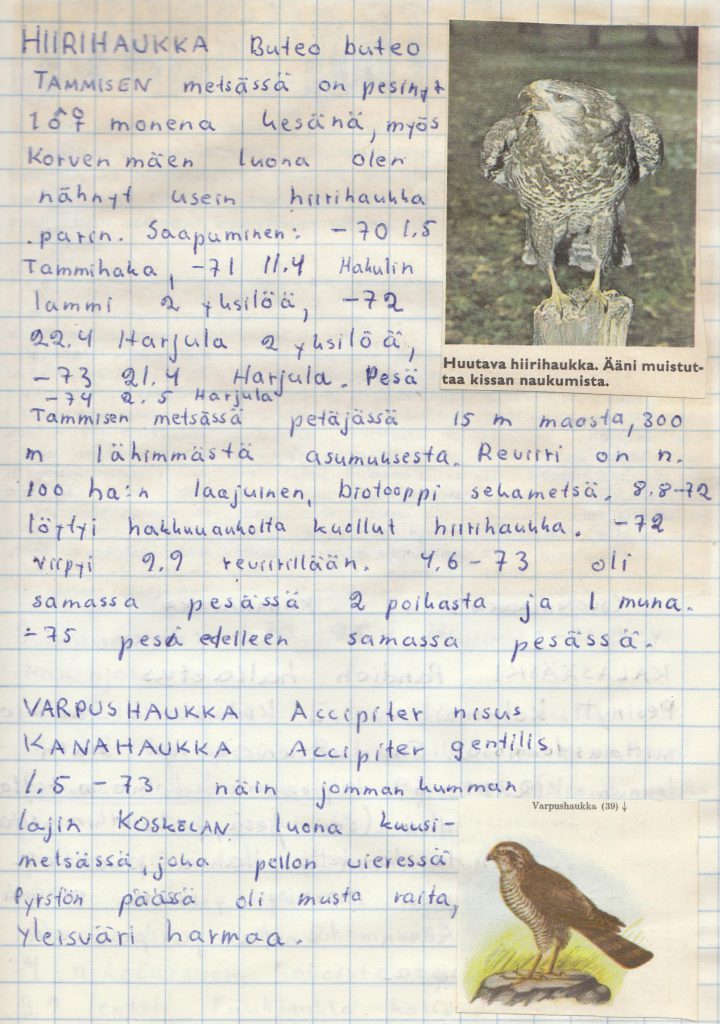 HIIRIHAUKKA Buteo buteo
TAMMISEN metsässä on pesinyt
1 ♂♀ monena kesänä, myös
Korven mäen luona olen
nähnyt usein hiirihaukka
parin. Saapuminen: -70 1.5
Tammihaka, -71 11.4 Hakulin
lammi 2 yksilöä, -72
22.4 Harjula 2 yksilöä,
-73 21.4 Harjula. Pesä
-74 2.5 Harjula
Tammisen metsässä petäjässä 15 m maosta, 300
m lähimmästä asumuksesta. Reviiri on n.
100 ha:n laajuinen, biotooppi sekametsä. 8.8-72
löytyi hakkuuaukolta kuollut hiirihaukka. -72
viipyi 9.9 reviirillään. 4.6-73 oli
samassa pesässä 2 poikasta ja 1 muna.
-75 pesi edelleen samassa pesässä.
Huutava hiirihaukka. Ääni muistut-
taa kissan naukumista.
VARPUSHAUKKA Accipiter nisus
KANAHAUKKA Accipiter gentilis,
1.5-73 näin jomman kumman
lajin KOSKELAN luona kuusi-
metsässä, joka pellon vieressä
Pyrstön päässä oli musta raita,
yleisväri harmaa.
Varpushaukka (39) ↓